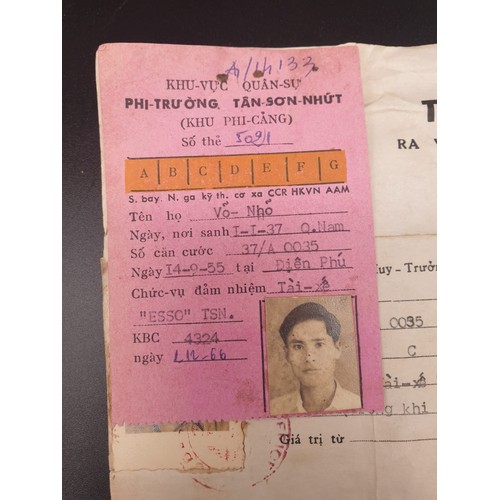 A/14 133
KHU-VỰC QUÂN-SỰ
PHI-TRƯỜNG TÂN-SƠN-NHỨT
(KHU PHI-CẢNG)
Số thẻ 5091
A B C D E F G
S. bay. N. ga kỹ th. cơ xa CCR HKVN AAM
Tên họ Võ- Nhỏ
Ngày, nơi sanh I-I-37 Q.Nam
Số căn cước 37/A 0035
Ngày I4-9-55 tại Điện Phú
Chức-vụ đảm nhiệm Tài-xế
"ESSO" TSN.
KBC 4324
ngày 1.12.66
T
RA V
uy-Trưởn
0035
C
ài-xế
ng khi
Giá trị từ